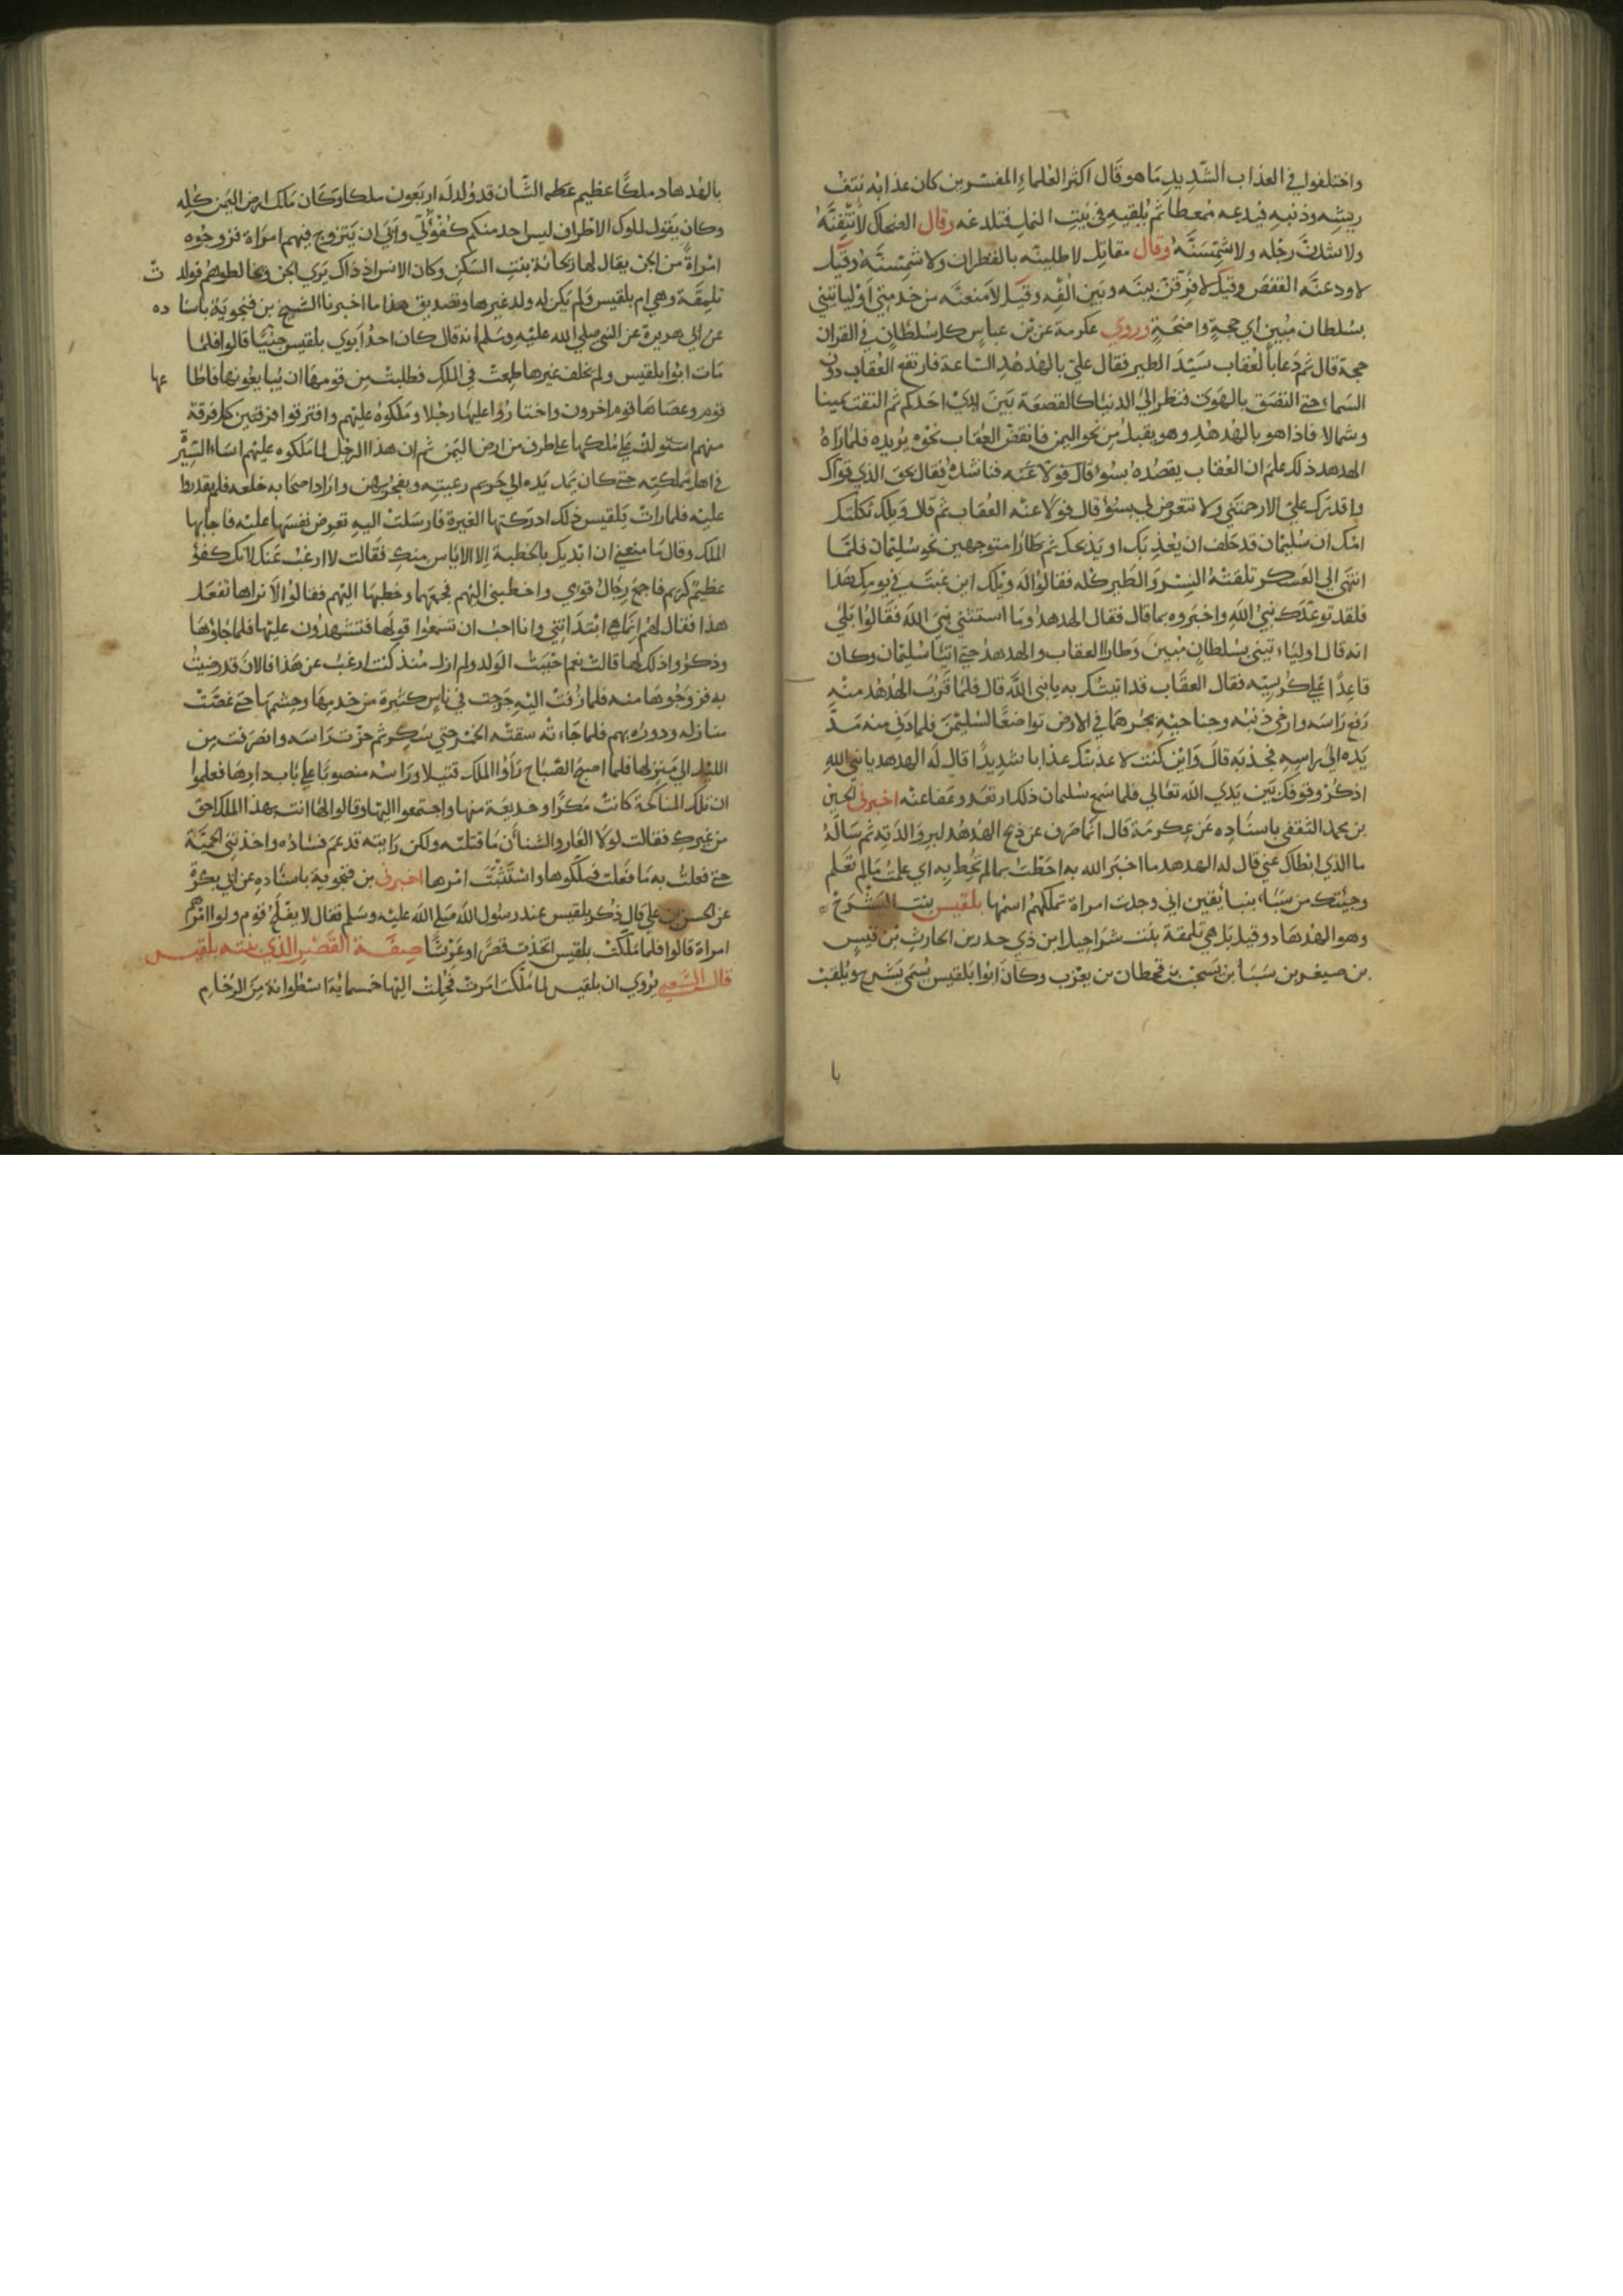 واختلفوا في العذاب الشديد ما هو قال اكثر العلماء المفسرين كان عذابه نتف
ريشه وذنبه فيدعه ممعطا ثم يلقيه في بيت النمل فتلدغه وقال الضحاك لانتفنه
ولاشدن رجله ولاشمسنه وقال مقاتل لاطلينه بالقطران ولاشمسنه وقيل
لاودعنه القفص وقيل لافرقن بينه وبين الفه وقيل لامنعنه من خدمتي او لياتيني
بسلطان مبين اي حجة واضحة وروي عكرمة عن بن عباس كل سلطان في القران
حجة قال ثم دعا بالعقاب سيد الطير فقال علي بالهدهد الساعة فارتفع العقاب دون
السماء حتى التصق بالهوى فنظر الى الدنيا كالقصعة بين يدي احدكم ثم التفت يمينا
وشمالا فاذا هو بالهدهد وهو يقبل من نحو اليمن فانقض العقاب نحوه يريده فلما راه
الهدهد ذلك علم ان العقاب يقصده بسوء قال فولا عنه فناشده فقال بحق الذي قواك
واقدرك علي الا رحمتني ولا تتعرض لي بسوء قال فولا عنه العقاب ثم قال ويلك ثكلتك
امك ان سليمان قد حلف ان يعذبك او يذبحك ثم طارا متوجهين نحو سليمان فلما
انتهى الى العسكر تلقته النسر والطير كله فقالوا له ويلك اين غبت في يومك هذا
فلقد توعدك نبي الله واخبروه بما قال فقال الهدهد وما استثنى نبي الله فقالوا بلى
انه قال او لياءتيني بسلطان مبين وطارا العقاب والهدهد حتى اتيا سليمان وكان
قاعدا علي كرسيه فقال العقاب قد اتيتك به يا نبي الله قال فلما قرب الهدهد منه
رفع راسه وارخى ذنبه وجناحيه يجرهما في الارض تواضعا لسليمن فلما دنى منه مد
يده الى راسه فجذبه قال واين كنت لاعذبنك عذابا شديدا قال له الهدهد يا نبي الله
اذكر وقوفك بين يدي الله تعالي فلما سمع سليمان ذلك ارتعد وعفا عنه اخبرني الحسين
بن محمد الثقفي باسناده عن عكرمة قال انما صرف عن ذبح الهدهد لبره والدته ثم ساله
ما الذي ابطاك عني قال له الهدهد ما اخبر الله به احطت بما لم تحط به اي علمت ما لم تعلم
وجئتك من سباء بنبأ يقين اني وجدت امراة تملكهم اسمها بلقيس بنت اليشرخ
وهو الهدهاد وقيل بل هي تلمقة بنت شراحيل ابن ذي حدد بن الحارث بن قيس
بن صيفر بن سبأ بن يشجب بن قحطان بن يعرب وكان ابوا بلقيس يسمى يشرح ويلقب
با
بالهدهاد ملكا عظيم عظيم الشان قد ولد له اربعون ملكا وكان ملك ارض اليمن كله
وكان يقول لملوك الاطراف ليس احد منكم كفؤ لي وابى ان يتزوج فيهم امراة فزوجوه
امراة من الجن يقال لها ريحانة بنت السكن وكان الانس اذ ذاك يري الجن ويخالطوهم فولدت
تلمقة وهي ام بلقيس ولم يكن له ولد غيرها وتصديق هذا ما اخبرنا الشيخ بن فنجوية باسناده
عن ابي هريرة عن النبي صلي الله عليه وسلم انه قال كان احد ابوي بلقيس جنيا قالوا فلما
مات ابوا بلقيس ولم يخلف غيرها طمعت في الملك فطلبت من قومها ان يبايعونها فاطاعها
قوم وعصاها قوم اخرون واختاروا عليها رجلا وملكوه عليهم وافترقوا فرقتين كل فرقة
منهم استولت علي ملكها على طرف من ارض اليمن ثم ان هذا الرجل لما ملكوه عليهم اساء السيرة
في اهل مملكته حتى كان يمد يده الى حريم رعيته ويفجر بهن واراد اصحابه خلعه فلم يقدروا
عليه فلما رات بلقيس ذلك ادركتها الغيرة فارسلت اليه تعرض نفسها عليه فاجابها
الملك وقال ما منعني ان ابتديك بالخطبة الا الاياس منك فقالت لا ارغب عنك لانك كفؤ
عظيم كريم فاجمع رجال قومي واخطبني اليهم فجمعهم وخطبها اليهم فقالوا لا نراها تفعل
هذا فقال لهم انما هي ابتداتني وانا احب ان تسمعوا قولها فتشهدون عليها فلما جاؤها
وذكروا ذلك لها قالت نعم احببت الولد ولم ازل منذ كنت ارغب عن هذا فالان قد رضيت
به فزوجوها منه فلما زفت اليه خرجت في ناس كثيرة من خدمها وحشمها حتى غصت
منازله ودوره بهم فلما جاءته سقته الخمر حتى سكر ثم حزت راسه وانصرفت من
الليل الى منزلها فلما اصبح الصباح راوا الملك قتيلا وراسه منصوبا على باب دارها فعلموا
ان تلك المناكحة كانت مكرا وخديعة منها واجتمعوا اليها وقالوا لها انت بهذا الملك احق
من غيرك فقالت لولا العار والشنأن ما قتلته ولكن رايته قد عم فساده واخذتني الحمية
حتى فعلت به ما فعلت فملكوها واستثبتت امرها اخبرني بن فنجوية باسناده عن ابي بكرة
عن الحسن بن علي قال ذكر بلقيس عند رسول الله صلي الله عليه وسلم فقال لا يفلح قوم ولوا امرهم
امراة قالوا فلما ملكت بلقيس اتخذت قصرا وعرشا صفة القصر الذي بنته بلقيس
قال الشعبي يروي ان بلقيس لما ملكت امرت فحملت اليها خمسمائة اسطوانة من الرخام